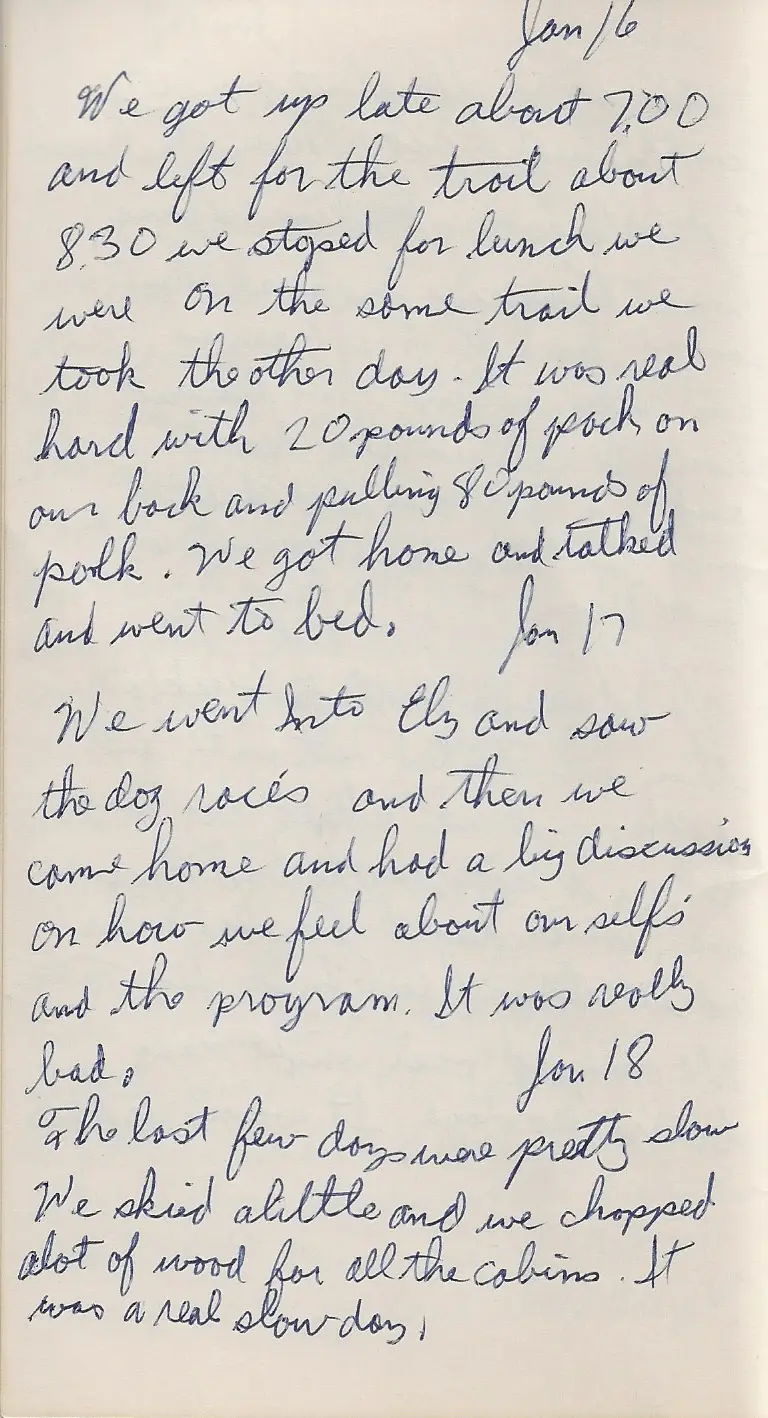 Jan 16
We got up late about 7.00
and left for the trail about
8.30 we stoped for lunch we
were on the same trail we
took the other day. It was real
hard with 20 pounds of pack on
our back and pulling 80 pounds of
polk. We got home and talked
and went to bed.
Jan 17
We went Into Ely and saw
the dog races and then we
came home and had a big discussion
on how we feel about our selfs
and the program. It was really
bad.
Jan 18
The last few days were pretty slow
We skied alittle and we chopped
alot of wood for all the cabins. It
was a real slow day.